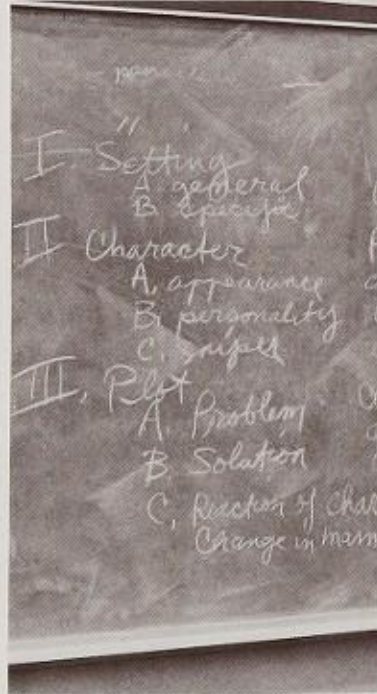 I. Setting
A. general
B. specific
II Character
A. appearance
B. personality
C.
III. Plot
A. Problem
B. Solution
C. Reaction of char
Change in